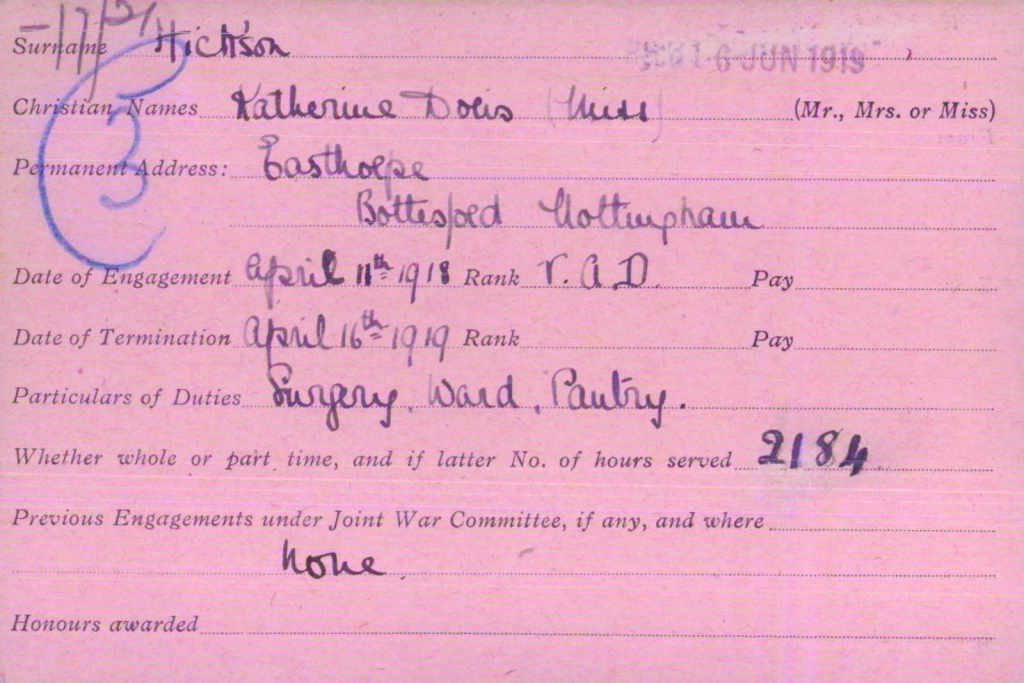 Surname Hickson 16 JUN 1919
Christian Names Katherine Doris (Miss) (Mr., Mrs. or Miss)
3
Permanent Address: Easthorpe
Bottesford Nottingham
Date of Engagement April 11th 1918 Rank V.A.D. Pay
Date of Termination April 16th 1919 Rank Pay
Particulars of Duties Surgery. Ward. Pantry.
Whether whole or part time, and if latter No. of hours served 2184
Previous Engagements under Joint War Committee, if any, and where
None.
Honours awarded